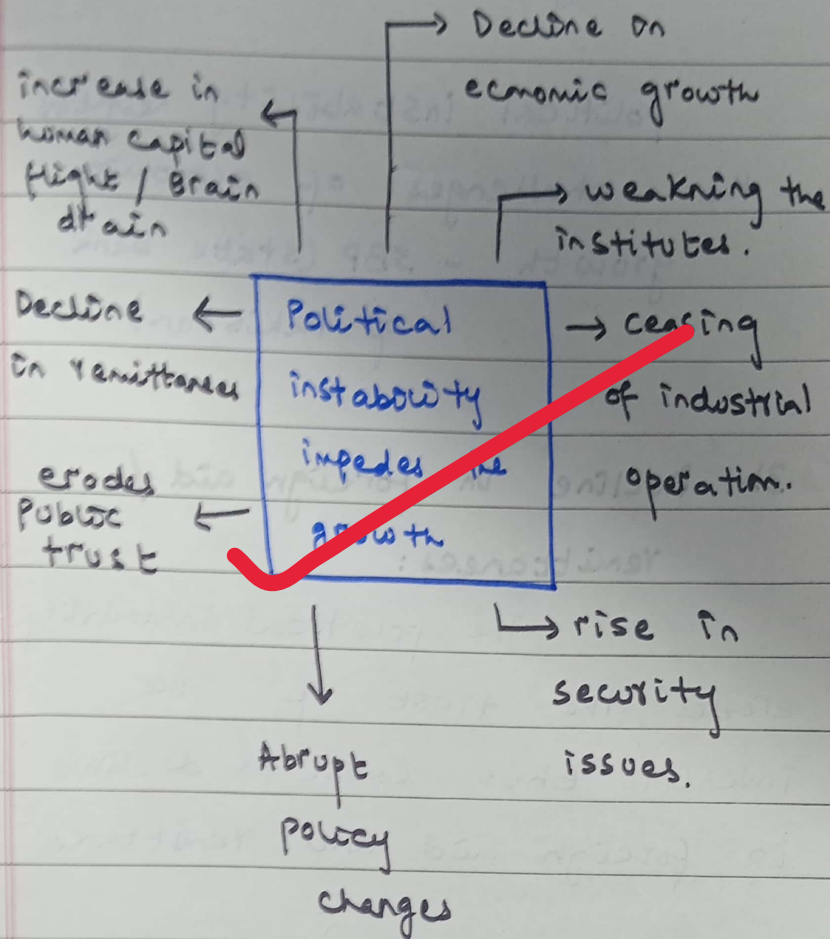 Decline on
economic growth
increase in
human capital
flight / Brain
drain
weakning the
institutes.
Decline
in remittances
Political
instabiity
impedes the
growth
ceasing
of industrial
operation.
erodes
public
trust
rise in
security
issues.
Abrupt
policy
changes